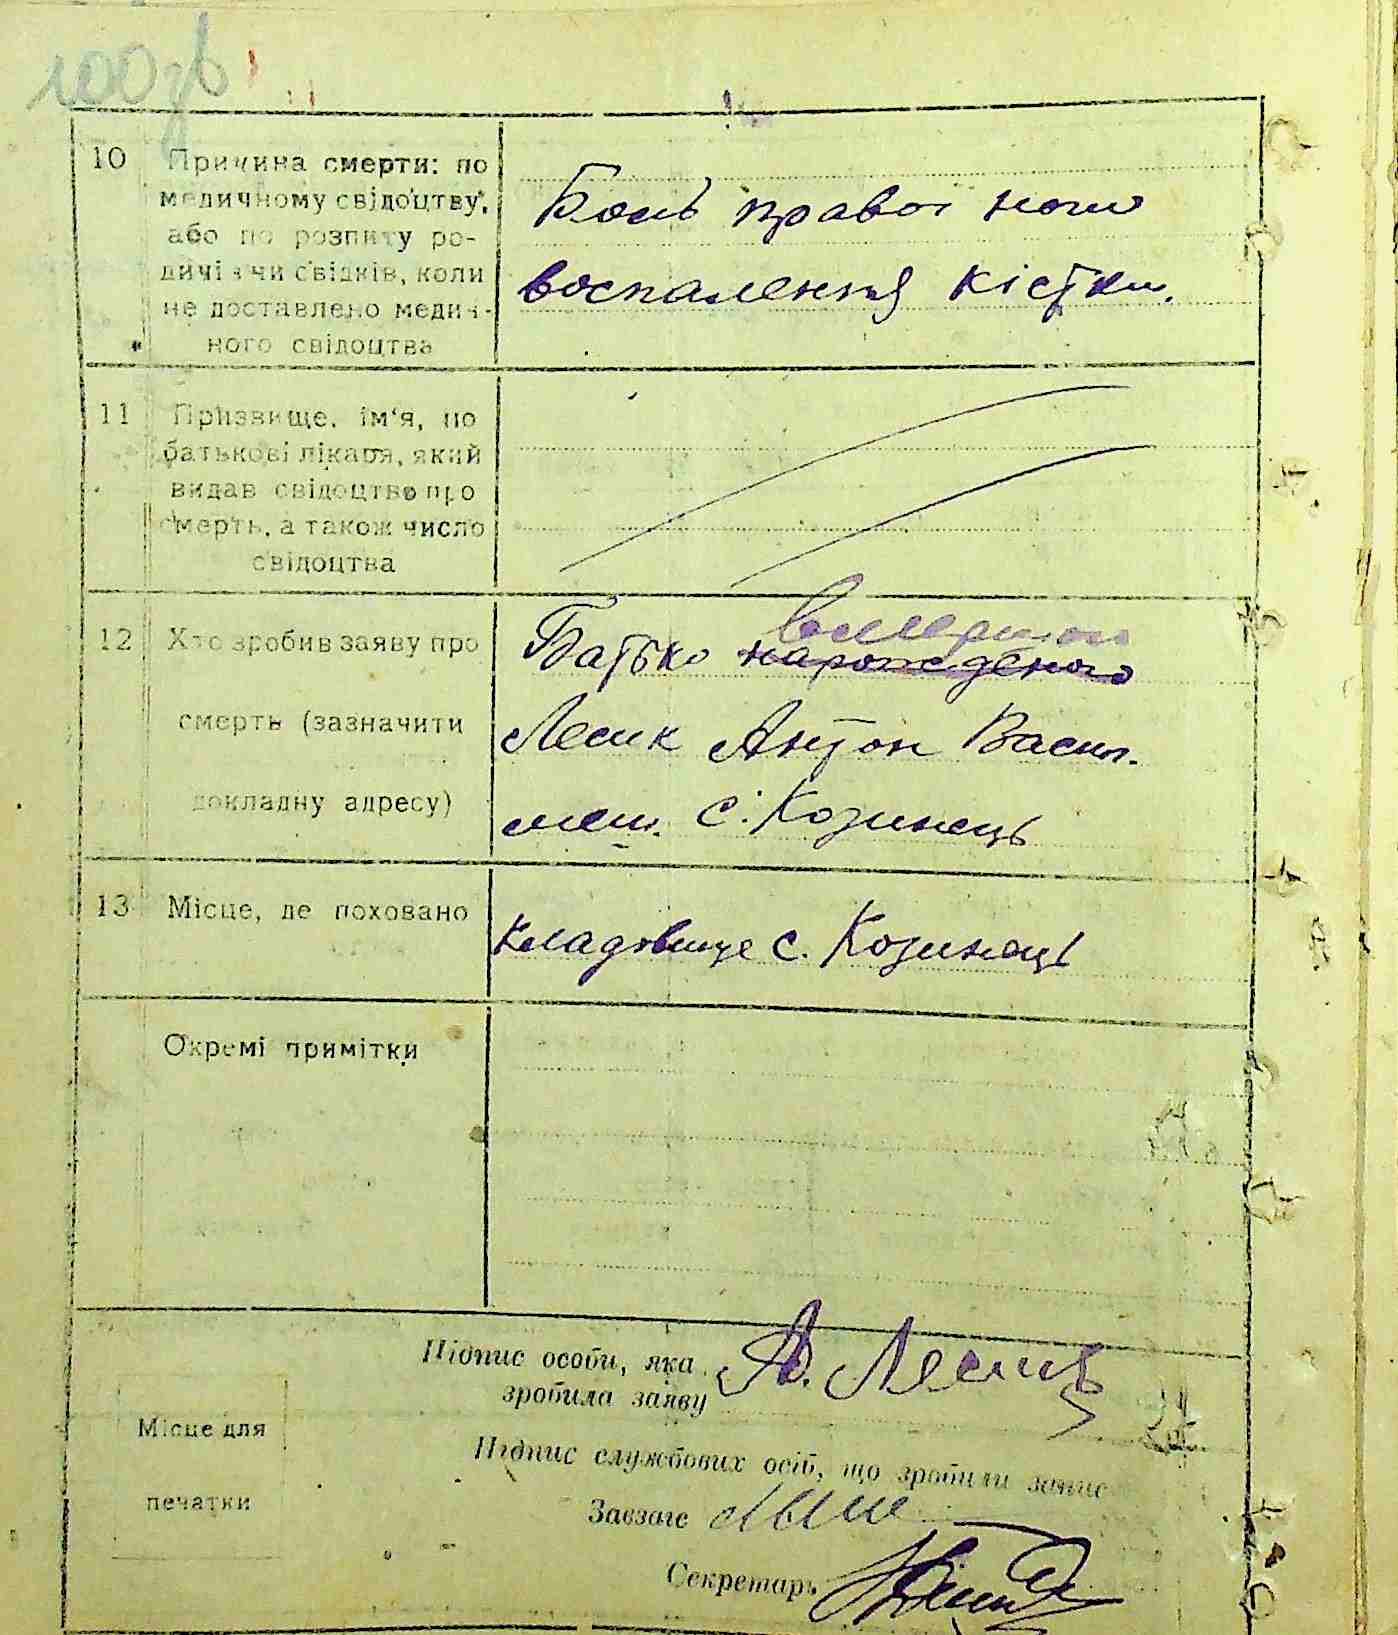 100 зв
10 Причина смерти: по
медичному свідоцтву,
або по розпиту ро-
дичів чи свідків, коли
не доставлено медич-
ного свідоцтва
Боль правої ноги
воспалення кістки.
11 Прізвище, ім'я, по
батькові лікаря, який
видав свідоцтво про
смерть, а також число
свідоцтва
12 Хто зробив заяву про
смерть (зазначити
докладну адресу)
вмершої
Батько народженого
Лесик Антон Васил.
меш. с. Козинець
13 Місце, де поховано
Кладовище с. Козинець
Окремі примітки
Підпис особи, яка
зробила заяву
А. Лесик
Місце для
печатки
Підпис службових осіб, що зробили запис
Завзагс
Секретарь